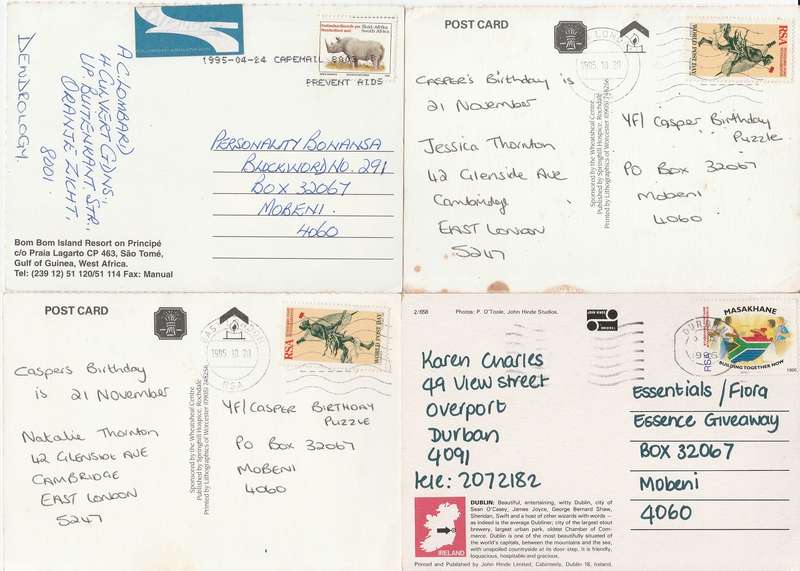 Suid-Afrika
South Africa
1995-04-24 CAPEMAIL 8803
PREVENT AIDS
A C LOMBARD
4 CULVERT GDNS,
UP. BUITENKANT STR,
ORANJE ZICHT,
8001
DENDROLOGY.
PERSONALITY BONANSA
BLOCKWORD NO. 291
BOX 32067
MOBENI.
4060
Bom Bom Island Resort on Principé
c/o Praia Lagarto CP 463, São Tomé,
Gulf of Guinea, West Africa.
Tel: (239 12) 51 120/51 114 Fax: Manual
POST CARD
RSA
WORLD POST DAY
1995.10.20
CASPER'S Birthday is
21 November
Jessica Thornton
42 Glenside Ave
Cambridge
EAST LONDON
5247
Sponsored by the Wheatsheaf Centre
Published by Springhill Hospice, Rochdale
Printed by Lithographics of Worcester (0905) 748266
YF/ Casper Birthday
Puzzle
PO Box 32067
Mobeni
4060
POST CARD
RSA
WORLD POST DAY
EAST LONDON
1995.10.20
RSA
Caspers Birthday
is 21 November
Natalie Thornton
42 GLENSIDE AVE
CAMBRIDGE
EAST LONDON
5247
Sponsored by the Wheatsheaf Centre
Published by Springhill Hospice, Rochdale
Printed by Lithographics of Worcester (0905) 748266
YF/CASPER BIRTHDAY
PUZZLE
PO BOX 32067
MOBENI
4060
2/658
Photos: P. O'Toole, John Hinde Studios.
JOHN HINDE
ORIGINAL
MASAKHANE
BUILDING TOGETHER NOW
RSA
1995
DURBAN
Karen Charles
49 View street
Overport
Durban
4091
tele: 2072182
Essentials / Fiora
Essence Giveaway
BOX 32067
Mobeni
4060
IRELAND
DUBLIN: Beautiful, entertaining, witty Dublin, city of
Sean O'Casey, James Joyce, George Bernard Shaw,
Sheridan, Swift and a host of other wizards with words —
as indeed is the average Dubliner; city of the largest stout
brewery, largest urban park, oldest Chamber of Com-
merce. Dublin is one of the most beautifully situated of
the world's capitals, between the mountains and the sea,
with unspoiled countryside at its door step. It is friendly,
loquacious, hospitable and gracious.
Printed and Published by John Hinde Limited, Cabinteely, Dublin 18, Ireland.